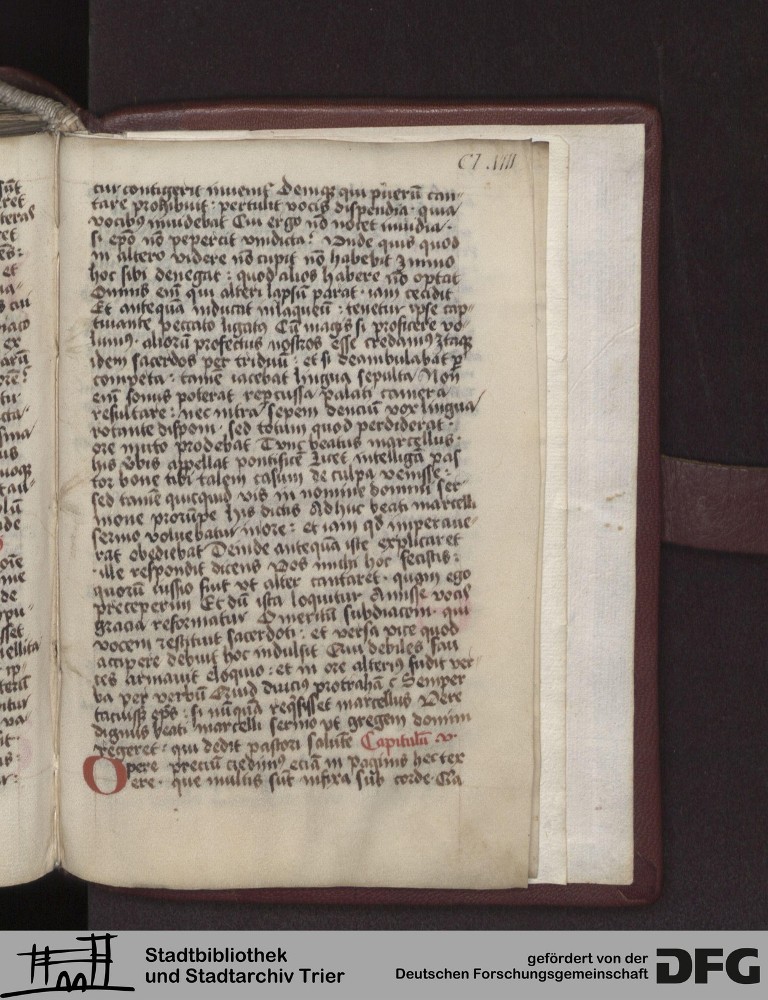 CLXIII
cur contigerit inuenit Demqꝫ qui puerū can
tare prohibuit · pertulit vocis dispendia · quia
vocibꝰ inuidebat Cui ergo nō nocet inuidia ·
si epō nō pepercit vindicta? Vnde quis quod
in altero videre nō cupit nō habebit ꝫ mino
hoc sibi denegat : quod alios habere nō optat
Omnis em̄ qui alteri lapsū parat · iam cecidit
Et anteqꝫ inducat in laqueū : tenetur ipse cap
tiuante peccato ligatꝰ Cū magis si proficere vo
lumꝰ · aliorū profectus nostros esse credamꝰ Itaqꝫ
idem sacerdos per triduū : et si deambulabat ꝑ
competa · tamē iacebat lingua sepulta Non
em̄ sonus poterat repercussa palati camera
resultare : nec intra sepem dencium vox lingua
rotante disponi · sed totum quod perdiderat ·
ore muto prodebat Tunc beatus marcellus ·
his v̄bis appellat pontificē Licet intelligā pas
tor bone tibi talem casum de culpa venisse :
sed tamē quicquid vis in nomine domini ser
mone prorūpe His dictis Adhuc beati marcelli
sermo voluebatur in ore : et iam qd imperaue
rat obediebat Deinde anteqꝫ iste explicaret
· ille respondit dicens Vos michi hoc fecistis :
quorū iussio fuit vt alter cantaret · quam ego
preceperim Et dū ista loquitur Amisse vocis
gracia reformatur O meritū subdiaconi · qui
vocem restituit sacerdoti : et versa vice quod
accipere debuit hoc indulsit Qui debiles fau
ces armauit eloquio : et in ore alteriꝰ fudit ver
ba per verbū Quid diucius protrahā? Semper
tacuisset ep̄s : si nūquā reqͥsisset marcellus Vere
dignus beati marcelli sermo vt gregem domini
regeret · qui dedit pastori salutē Capitulū v
Opere preciū credimꝰ eciā in paginis hec tex
ere · que multis sūt infixa sub corde Gra
Stadtbibliothek
und Stadtarchiv Trier
gefördert von der
Deutschen Forschungsgemeinschaft
DFG